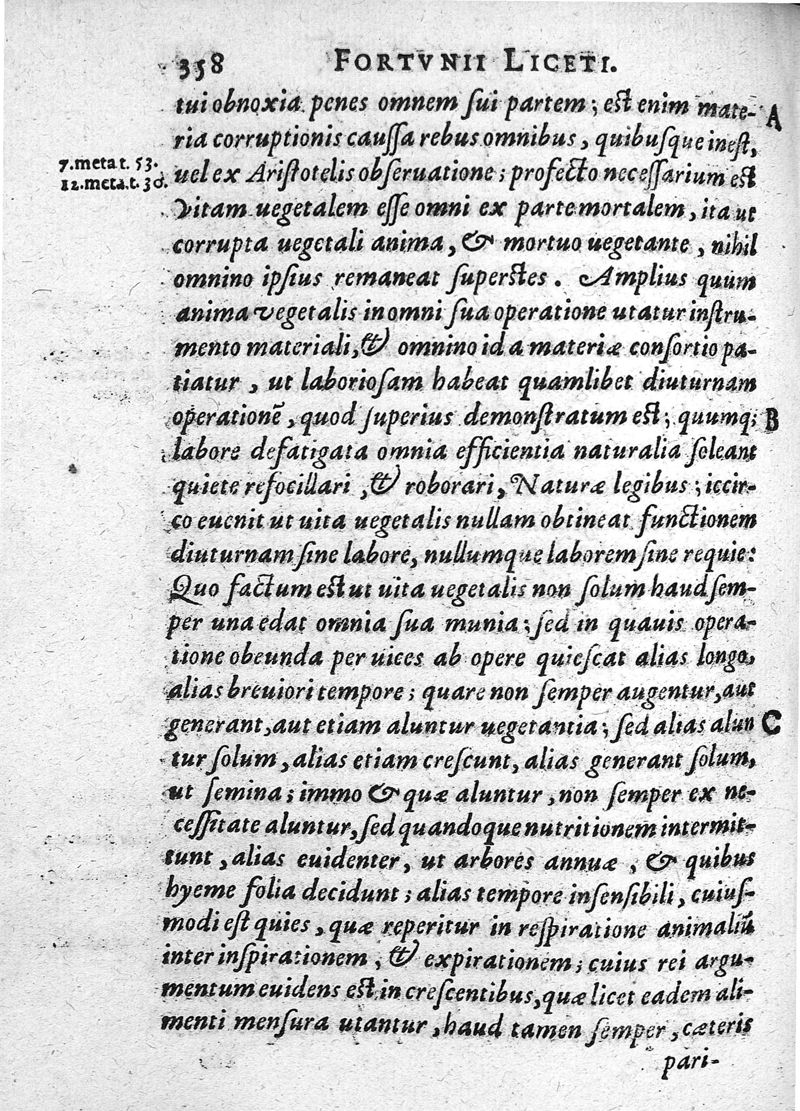 358 FORTVNII LICETI.
tui obnoxia penes omnem sui partem; est enim mate- A
ria corruptionis caussa rebus omnibus, quibusque inest,
7.meta t. 53. uel ex Aristotelis obseruatione; profecto necessarium est
12.meta.t.30. Vitam uegetalem esse omni ex parte mortalem, ita ut
corrupta uegetali anima, & mortuo uegetante, nihil
omnino ipsius remaneat superstes. Amplius quum
anima vegetalis in omni sua operatione utatur instru-
mento materiali, & omnino id a materiæ consortio pa-
tiatur, ut laboriosam habeat quamlibet diuturnam
operationē, quod superius demonstratum est; quumq; B
labore defatigata omnia efficientia naturalia soleant
quiete refocillari, & roborari, Naturæ legibus; iccir-
co euenit ut uita uegetalis nullam obtineat functionem
diuturnam sine labore, nullumque laborem sine requie:
Quo factum est ut uita uegetalis non solum haud sem-
per una edat omnia sua munia; sed in quauis opera-
tione obeunda per uices ab opere quiescat alias longo,
alias breuiori tempore; quare non semper augentur, aut
generant, aut etiam aluntur uegetantia; sed alias alun C
tur solum, alias etiam crescunt, alias generant solum,
ut semina; immo & quæ aluntur, non semper ex ne-
cessitate aluntur, sed quandoque nutritionem intermit-
tunt, alias euidenter, ut arbores annuæ, & quibus
hyeme folia decidunt; alias tempore insensibili, cuius-
modi est quies, quæ reperitur in respiratione animaliū
inter inspirationem, & expirationem; cuius rei argu-
mentum euidens est in crescentibus, quæ licet eadem ali-
menti mensura utantur, haud tamen semper, cæteris
pari-